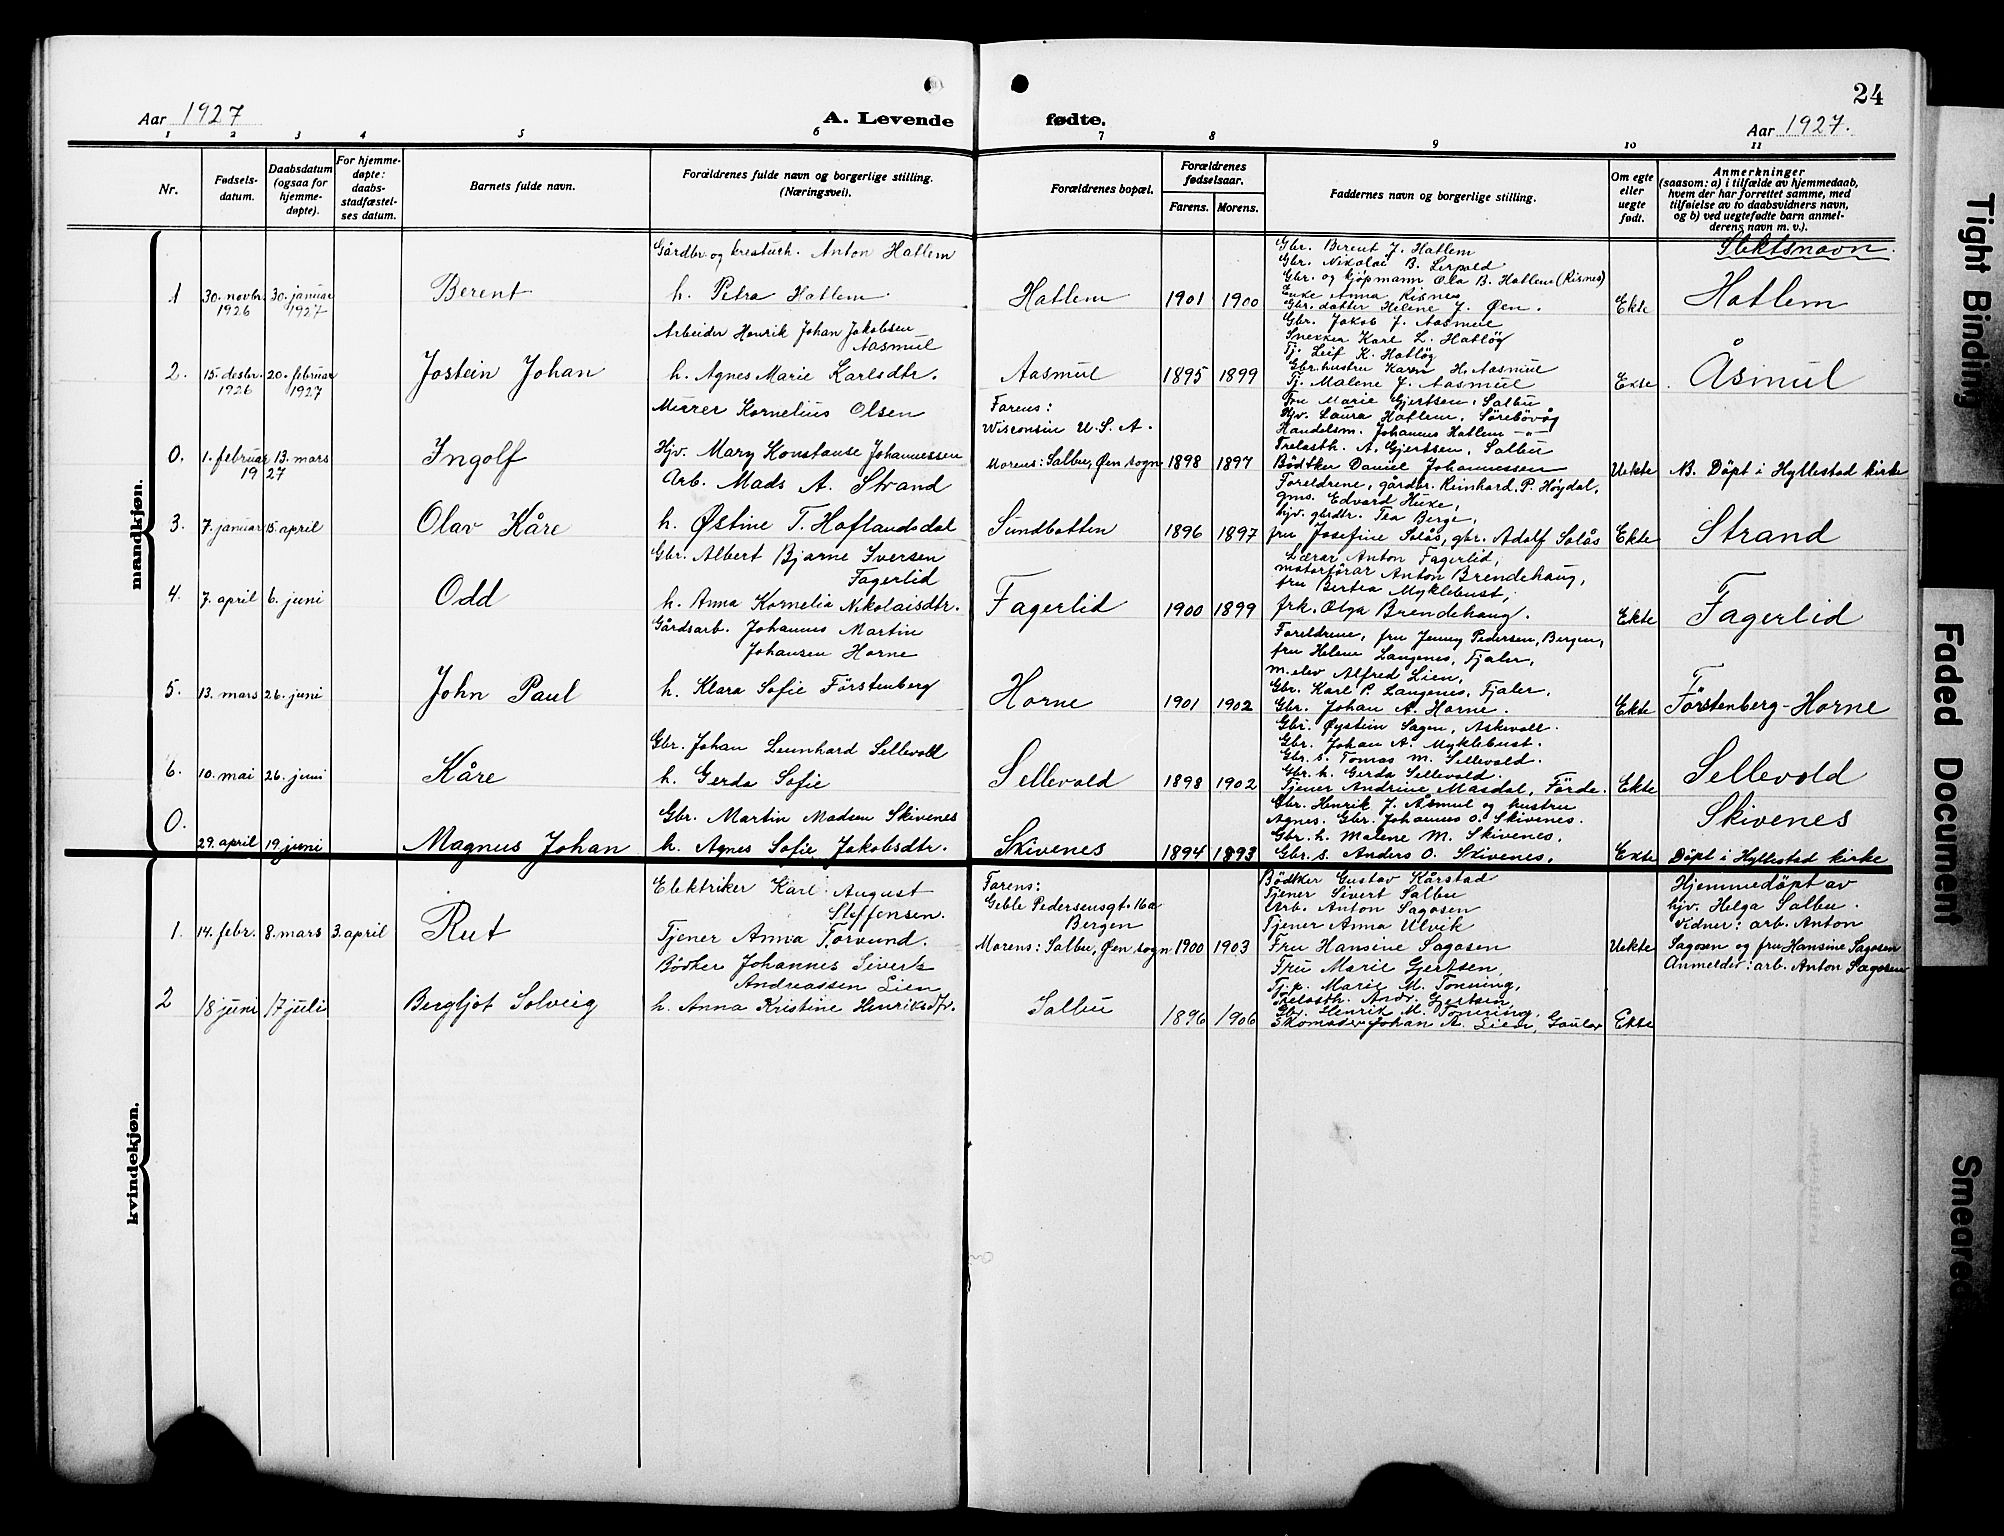 24
Aar 1927
A. Levende fødte.
Aar 1927.
1 2 3 4 5 6 7 8 9 10 11
Nr.
Fødsels-
datum.
Daabsdatum
(ogsaa for
hjemme-
døpte).
For hjemme-
døpte:
daabs-
stadfæstel-
ses datum.
Barnets fulde navn.
Forældrenes fulde navn og borgerlige stilling.
(Næringsvei).
Forældrenes bopæl.
Forældrenes
fødselsaar.
Farens. Morens.
Faddernes navn og borgerlige stilling.
Om egte
eller
uegte
født.
Anmerkninger
(saasom: a) i tilfælde av hjemmedaab,
hvem der har forrettet samme, med
tilføielse av to daabsvidners navn,
og b) ved uegtefødte barn anmel-
derens navn m. v.).
Slektsnavn
mandkjøn.
1
30. novbr.
1926
30. januar
1927
Berent
Gårdbr. og kreaturh. Anton Hatlem
h. Petra Hatlem.
Hatlem
1901 1900
Gbr. Berent J. Hatlem
Gbr. Nikolai B. Leirpold
Gbr. og kjøpmann Ola B. Hatlem (Risnes)
Enke Anna Risnes
Gbr. datter Helene J. Øen.
Ekte
Hatlem
2.
15. desbr.
1926
20. februar
1927
Jostein Johan
Arbeider Henrik Johan Jakobsen
Aasmul
h. Agnes Marie Karlsdtr.
Aasmul
1895 1899
Gbr. Jakob J. Aasmul
Snekker Karl L. Hatløy
Tj. Leif K. Hatløy
Gbr. hustru Karen H. Aasmul
Tj. Malene J. Aasmul
Ekte.
Åsmul
0.
1. februar 13. mars
19 27
Ingolf
Murer Kornelius Olsen
Hjv. Mary Konstanse Johannessen
Farens:
Wisconsin U. S. A.
Morens: Salbu, Øen sogn
1898 1897
Fru Marie Gjertsen, Salbu
Hjv. Laura Hatlem, Sörebövåg
Handelsm. Johannes Hatlem - " -
Trelasth. A. Gjertsen, Salbu
Bödtker Daniel Johannessen
Uekte
N. Döpt i Hyllestad kirke
3.
7. januar
15. april
Olav Kåre
Arb. Mads A. Strand
h. Østine T. Hoflandsdal
Sundbotten
1896 1897
Foreldrene, gårdbr. Reinhard P. Høydal,
gms. Edvard Huke,
hjv. gbrdtr. Tea Berge,
fru Josefine Solås, gbr. Adolf Solås
Ekte
Strand
4.
7. april
6. juni
Odd
Gbr. Albert Bjarne Iversen
Fagerlid
h. Anna Kornelia Nikolaisdtr.
Fagerlid
1900 1899
Lærar Anton Fagerlid,
motorförar Anton Brendehaug,
fru Bertea Myklebust,
frk. Olga Brendehaug.
Ekte
Fagerlid
5.
13. mars
26. juni
John Paul
Gårdsarb. Johannes Martin
Johansen Horne
h. Klara Sofie Förstenberg
Horne
1901 1902
Foreldrene, fru Jenny Pedersen, Bergen,
fru Helene Langenes, Fjaler,
m. elev Alfred Lien,
Gbr. Karl P. Langenes, Fjaler,
Gbr. Johan A. Horne.
Ekte
Förstenberg-Horne
6.
10. mai
26. juni
Kåre
Gbr. Johan Leonhard Sellevoll
h. Gerda Sofie
Sellevold
1898 1902
Gbr. Øystein Sagen, Askevoll.
Gbr. Johan A. Myklebust.
Gbr. s. Tomas M. Sellevold.
Gbr. h. Gerda Sellevold.
Tjener Andrine Masdal, Förde.
Ekte
Sellevold
0.
29. april
19. juni
Magnus Johan
Gbr. Martin Madsen Skivenes
h. Agnes Sofie Jakobsdtr.
Skivenes
1894 1893
Gbr. Henrik J. Åsmul og hustru
Agnes. Gbr. Johannes O. Skivenes.
Gbr. h. Malene M. Skivenes.
Gbr. s. Anders O. Skivenes.
Ekte
Skivenes
Döpt i Hyllestad kirke
kvindekjøn.
1.
14. febr.
8. mars
3. april
Rut
Elektriker Karl August
Steffensen.
Tjener Anna Torvund.
Farens:
Geble Pedersensgt. 16a
Bergen
Morens: Salbu, Øen sogn
1900 1903
Bödtker Gustav Kårstad
Tjener Sivert Salbu
Arb. Anton Sagosen
Tjener Anna Ulvik
Fru Hansine Sagosen
Uekte
Hjemmedöpt av
hjv. Helga Salbu.
Vidner: arb. Anton
Sagosen og fru Hansine Sagosen
Anmelder: arb. Anton Sagosen
2
18 juni
17 juli
Bergljot Solveig
Bödker Johannes Sivert
Andreassen Lien
h. Anna Kristine Henriksdtr.
Salbu
1896 1906
Fru Marie Gjertsen,
Tj.p. Marie M. Tonning,
Trelasth. Andr. Gjertsen,
Gbr. Henrik M. Tonning,
Skomaker Johan A. Lien, Gaular
Ekte
Tight Binding
Faded Document
Smeared